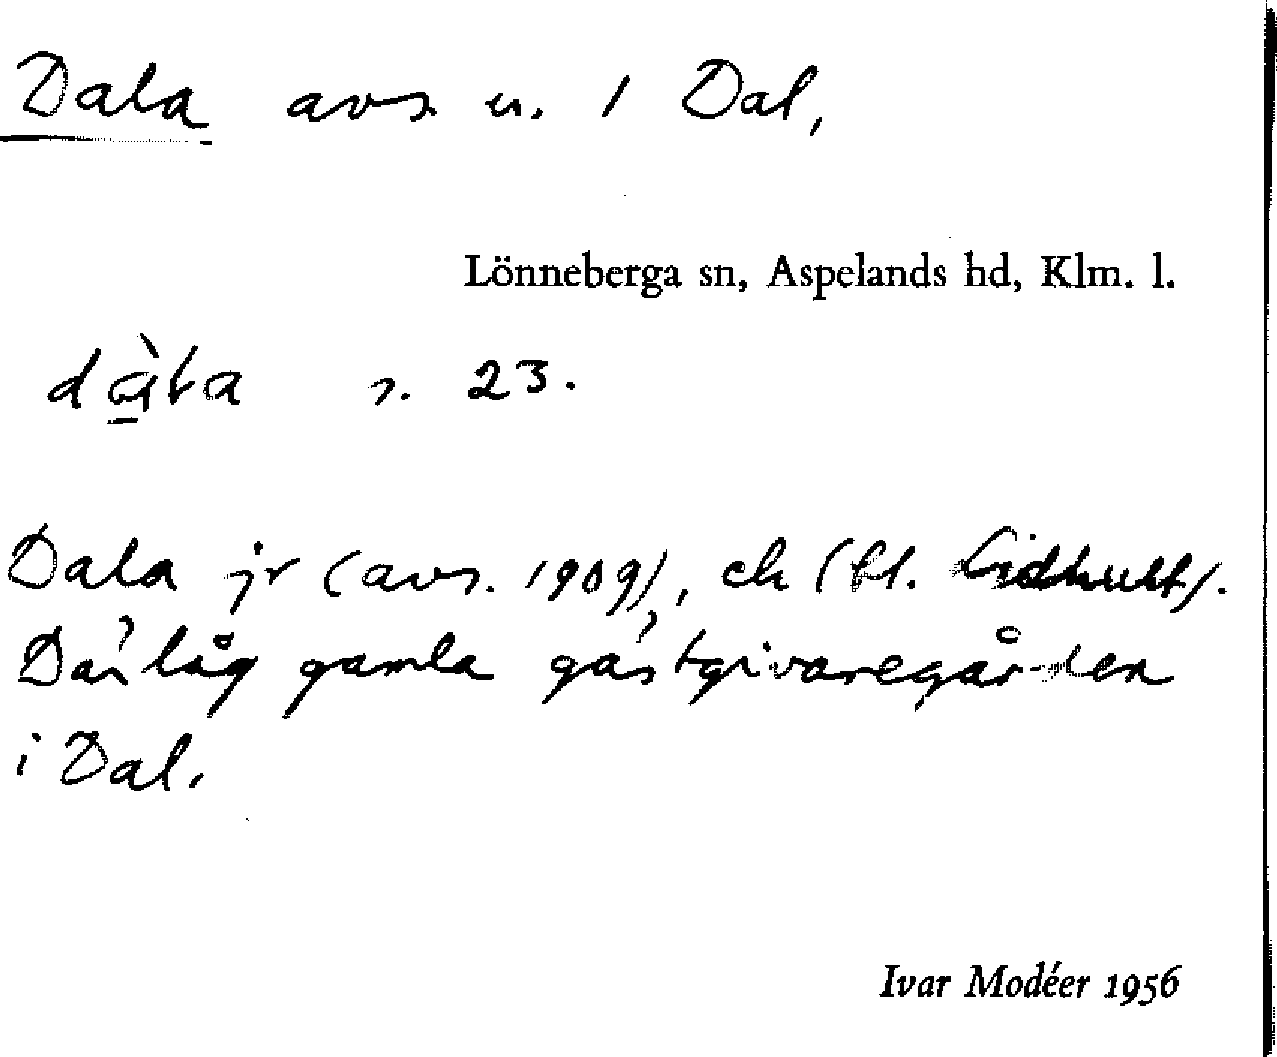 Dala avs. u. 1 Dal,
Lönneberga sn, Aspelands hd, Klm. l.
s. 23.
Dala jr (avs. 1909), ek (bl. Lidhult).
Där låg gamla gästgivaregården
i Dal.
Ivar Modéer 1956